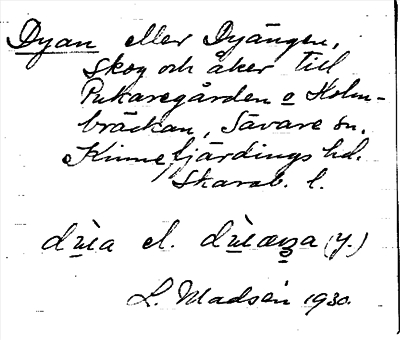 Dyan eller Dyängen,
skog och åker till
Pukaregården o Holm-
bräckan, Sävare sn.
Kinnefjärdings hd.
Skarab. l.
el. (y.)
L. Madsén 1930.